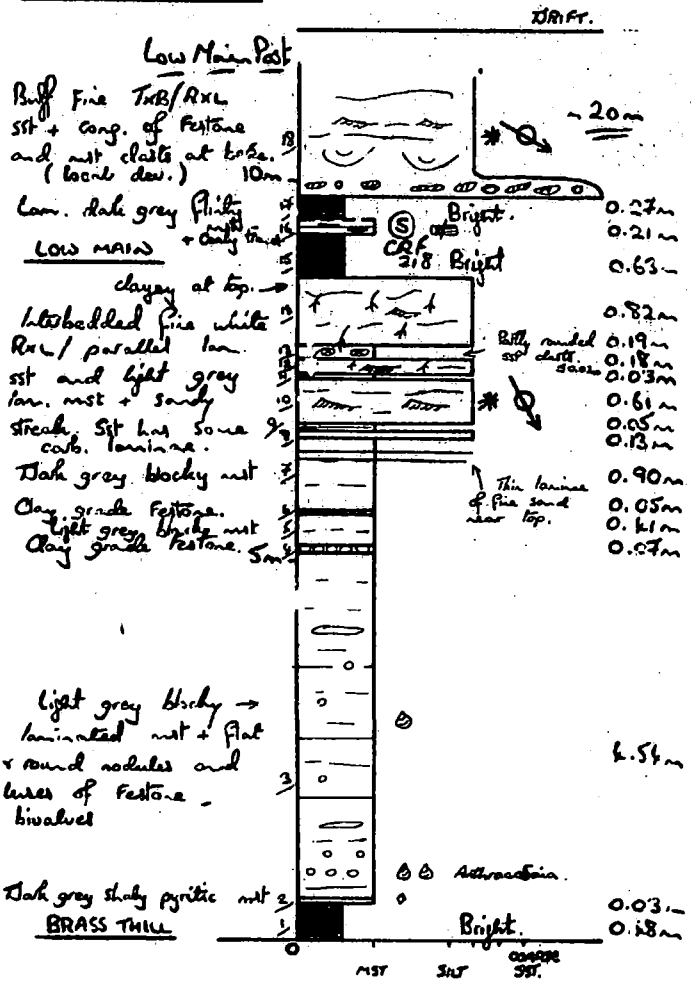 DRIFT.
Low Main Post
Buff fine TXB/RXL
sst + cong. of Festone
and mst clasts at base.
(local dev.) 10m
~20m
18
Lam. dark grey flinty
mst
LOW MAIN
Bright.
S
CRF
218 Bright
0.27m
0.21m
0.63m
clayey at top. →
Interbedded fine white
RXL/ parallel lam.
sst and light grey
lam. mst + sandy
streak. Sst has some
carb. laminae.
13
10
9
Partly rounded
sst clasts.
0.82m
0.19m
0.18m
0.03m
0.61m
0.05m
0.13m
Dark grey blocky mst
Thin laminae
of fine sand
near top.
0.90m
Clay grade Festone.
light grey blocky mst
Clay grade Festone. 5m
0.05m
0.41m
0.07m
Light grey blocky →
laminated mst + flat
+ round nodules and
lenses of Festone
bivalves
3
4.54m
Anthraconaia.
Dark grey shaly pyritic mst
2
0.03m
BRASS THILL
1
Bright.
0.48m
0
MST SILT COARSE
SST.